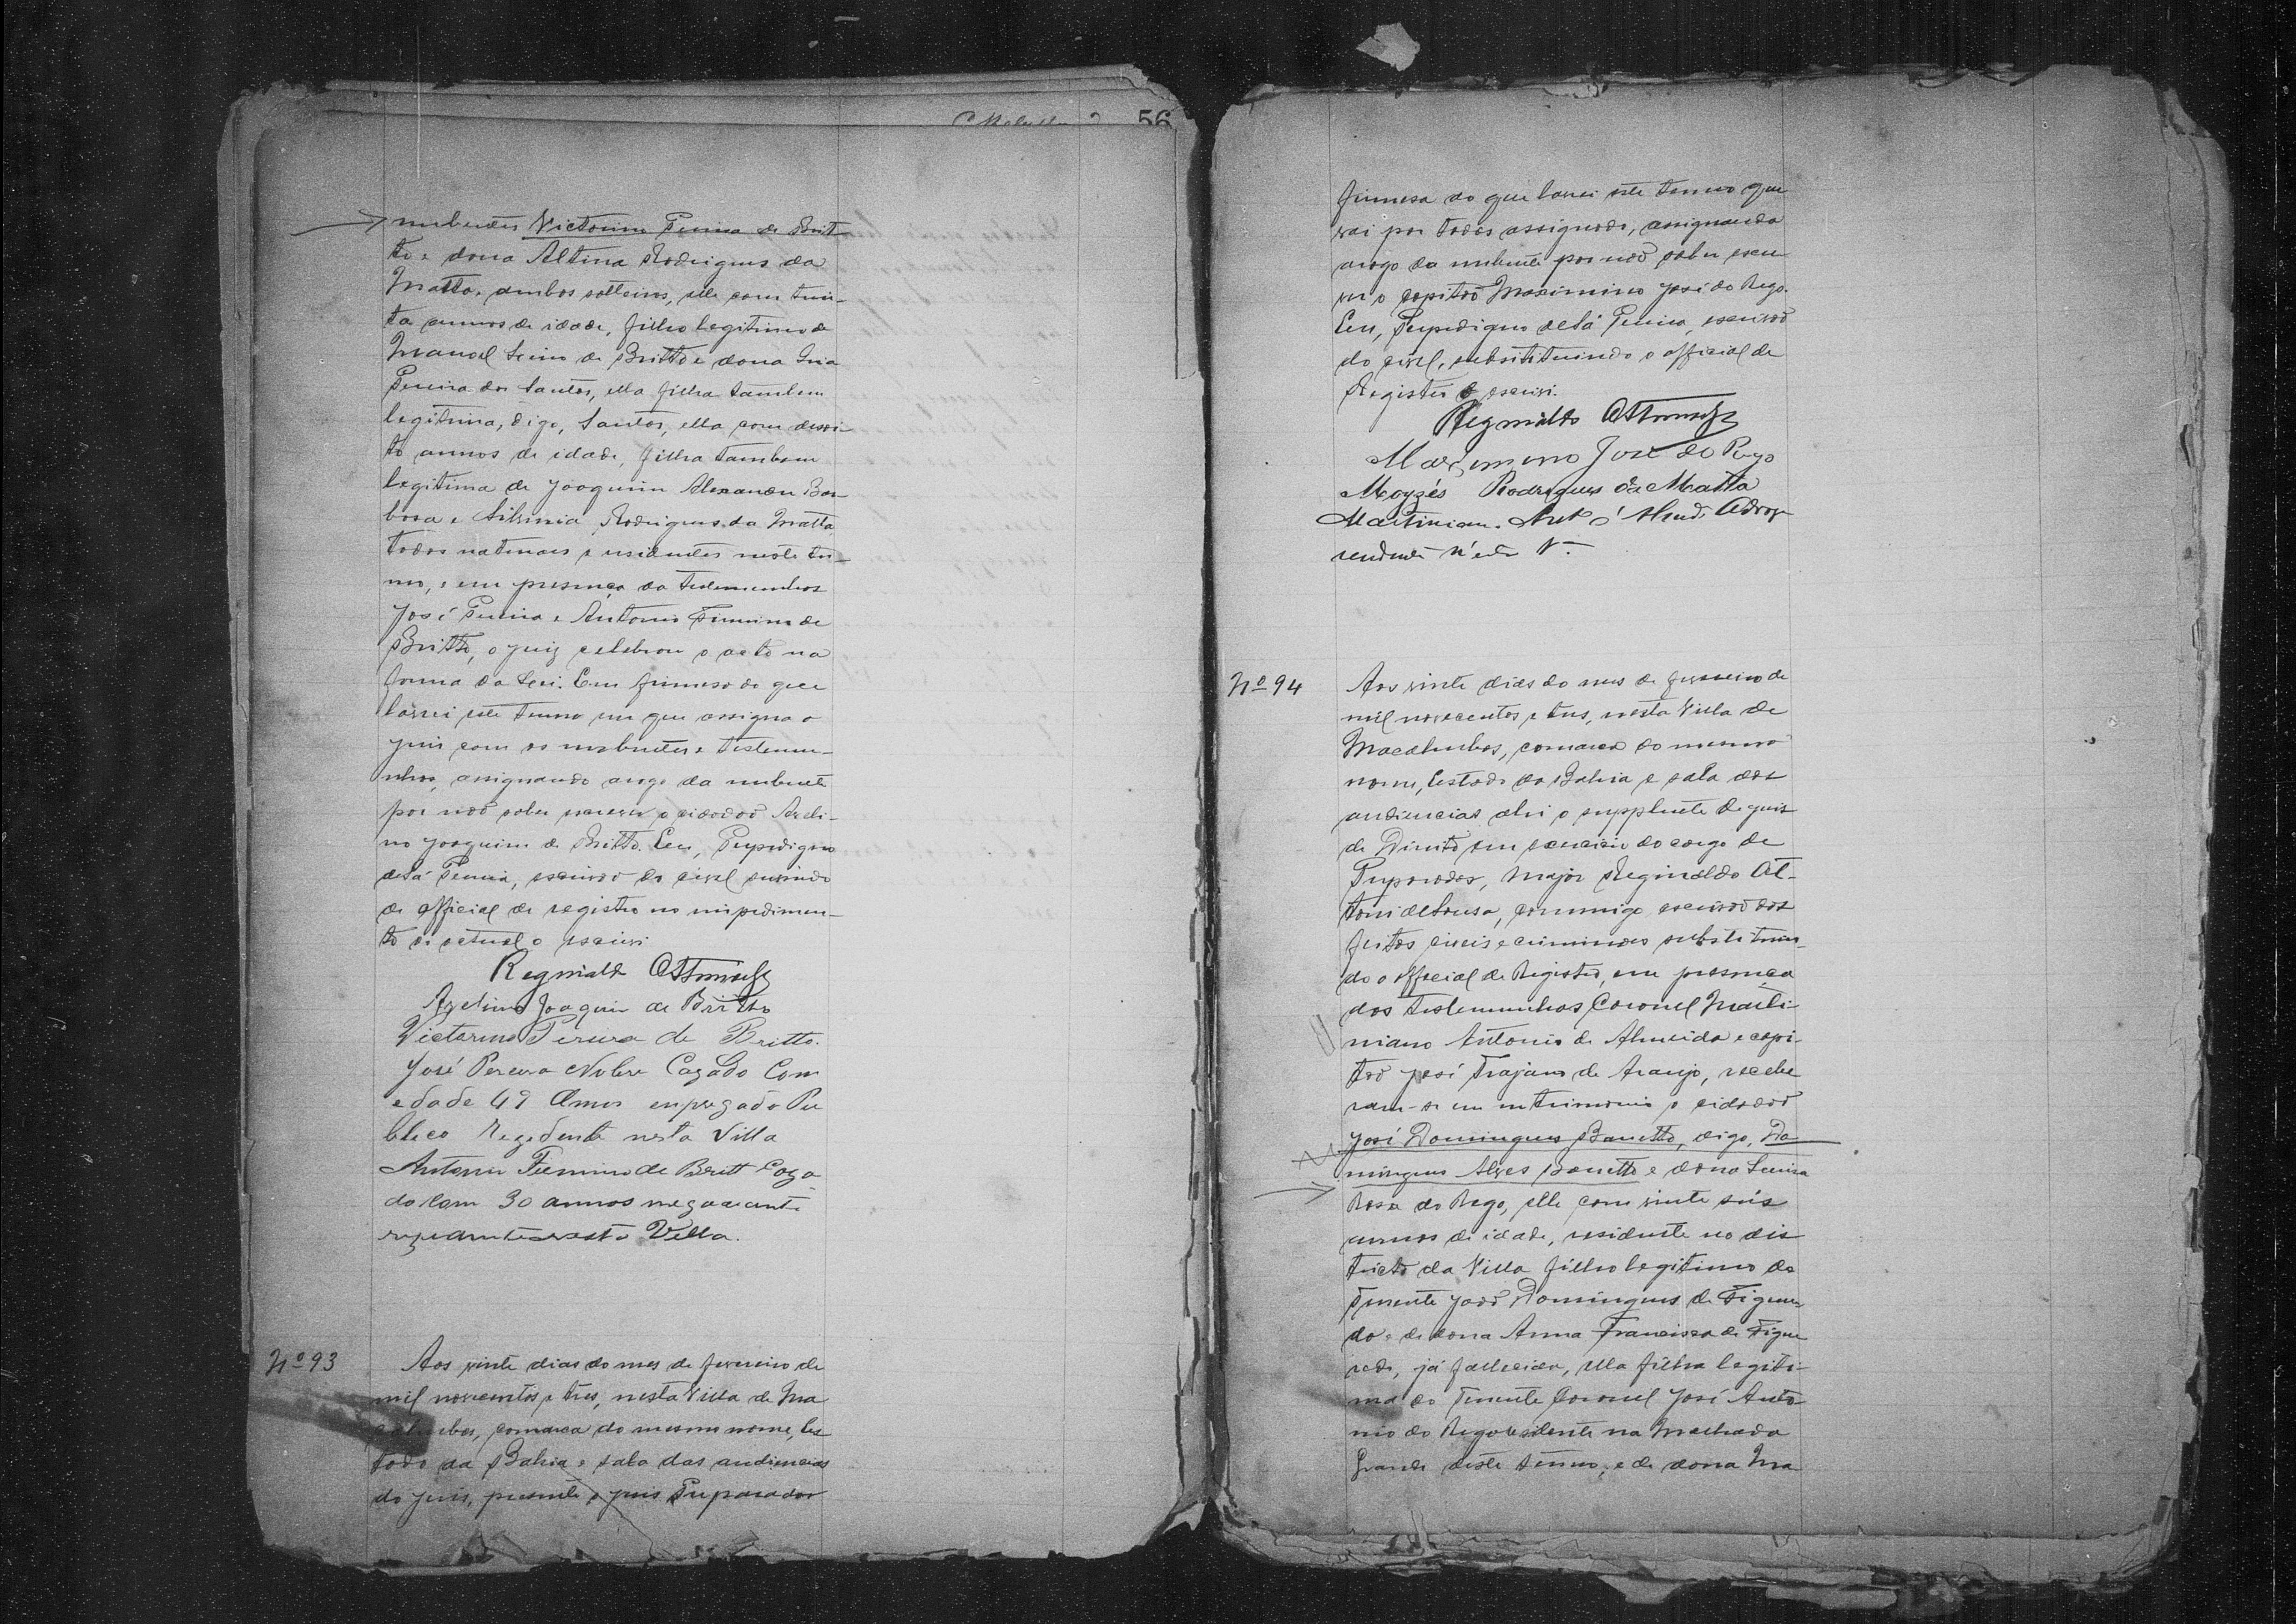 56
nubentes Victorino Pereira de Brit-
to e dona Altina Rodrigues da
Matta, ambos solteiros, elle com trin-
ta annos de idade, filho legitimo de
Manoel Lino de Britto e dona Ana
Pereira dos Santos, ella filha tambem
legitima, digo, Santos, ella com desoi-
to annos de idade, filha tambem
legitima de Joaquim Alexandre Bar-
bosa e Silvinia Rodrigues da Matta
todos naturaes e residentes neste ter-
mo, e em presença das testemunhas
José Pereira e Antonio Firmino de
Britto, o juiz celebrou o acto na
forma da Lei. Em firmesa do que
lavrei este termo em que assigna o
juis com os nubentes e testemu-
nhas, assignando arogo da nubente
por não saber escrever o cidadão Azeli-
no Joaquim de Britto. Eu, Perpedigno
de Sá Pereira, escrivão do civel servindo
de official de registro no impedimen-
to do actual o escrivi
Reginaldo
Azelino Joaquim de Britto
Victorino Pereira de Britto.
José Pereira Nobre Cazado Com
edade 49 Annos enpregado Pu
bleco Rezedente nesta Villa
Antonio Firmino de Britt Caza
do Com 30 annos negociante
nesta Villa.
Nº 93
Aos vinte dias do mes de fevereiro de
mil novecentos e tres, nesta Villa de Ma
bas, comarca do mesmo nome, Es
tado da Bahia e sala das audiencias
do juis, presente o juis Preparador
firmesa do que lavrei este termo que
vai por todos assignado, assignando
arogo da nubente por não saber escre
ver o capitão Maximino José do Rego.
Eu, Perpedigno de Sá Pereira, escrivão
do civel, substituindo o official de
Registro o escrivi.
Reginaldo
Maximino José do Rego
Moyzés Rodrigues da Matta
Martinian. Ant. d'Almd. Adv
n'esta Vª.
Nº 94
Aos vinte dias do mes de fevereiro de
mil novecentos e tres, nesta Villa de
Macahubas, comarca do mesmo
nome, Estado da Bahia e sala das
audiencias ahi o supplente de juis
de Direito em exercicio do cargo de
Preparador, Major Reginaldo At-
toni de Sousa, commigo escrivão dos
feitos civeis e criminaes substituin-
do o official de Registro, em presença
das testemunhas Coronel Marti-
niano Antonio de Almeida e capi-
tão José Trajano de Araujo, recebe
ram-se em mtrimonio o cidadão
José Domingues Banetto, digo, Do
mingues Alves Banetto e dona Laura
Rosa do Rego, elle com vinte seis
annos de idade, residente no dis
tricto da Villa filho legitimo do
Tenente João Domingues de Figuere
do e de dona Anna Francisca de Figue
redo, já fallecida, ella filha legiti-
ma do Tenente Coronel José Anto
nio do Rego residente na Malhada
Grande deste termo, e de dona Ma